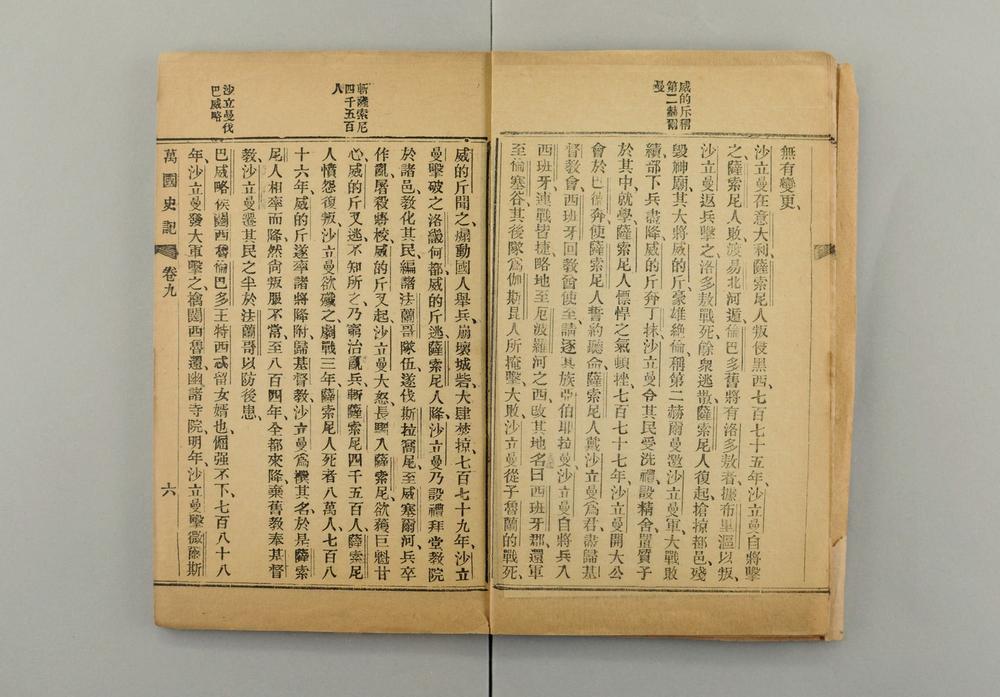 威的斥稱
第二赫爾
曼
無有變更、
沙立曼在意大利、薩索尼人叛侵黑西、七百七十五年、沙立曼自將擊
之、薩索尼人敗、渡易北河遁、倫巴多舊將有洛多敖者、據布里漚以叛、
沙立曼返兵擊之、洛多敖戰死、餘衆逃散、薩索尼人復起、搶掠都邑、殘
毀紳廟、其大將威的斤、豪雄絶倫、稱第二赫爾曼、邀沙立曼軍大戰敗
績、部下兵盡降、威的斤奔丁抹、沙立曼令其民受洗禮、設精舍、置質子
於其中就學、薩索尼人慓悍之氣頓挫、七百七十七年、沙立曼開大公
會於巴德奔、使薩索尼人誓約聽命、薩索尼人戴沙立曼爲君、盡歸基
督教會、西班牙回教酋使至、請逐其族亞伯耶拉曼、沙立曼自將兵入
西班牙、連戰皆捷、略地至厄波羅河之西、改其地名曰西班牙郡、還軍
至倫塞谷、其後隊爲伽斯昆人所掩擊、大敗、沙立曼從子魯蘭的戰死、
斬薩索尼
四千五百
人
沙立曼伐
巴威略
威的斤聞之、煽動國人舉兵、崩壞城砦、大肆焚掠、七百七十九年、沙立
曼擊破之、洛畿何都威的斤逃、薩索尼人降、沙立曼乃設禮拜堂教院
於諸邑、教化其民、編諸法蘭哥隊伍、遂伐斯拉窩尼、至威塞爾河、兵卒
作亂、屠殺將校、威的斤又起、沙立曼大怒、長驅入薩索尼、欲獲巨魁甘
心、威的斤又逃、不知所之、乃窮治亂兵、斬薩索尼四千五百人、薩索尼
人憤怨復叛、沙立曼欲殲之、劇戰三年、薩索尼人死者八萬人、七百八
十六年、威的斤遂率諸將降附、歸基督教、沙立曼爲襈其名、於是薩索
尼人相率而降、然尙叛服不常、至八百四年、全部來降、棄舊教、奉基督
教、沙立曼遷其民之半於法蘭哥、以防後患、
巴威略侯闥西魯、倫巴多王特西忒留女婿也、倔强不下、七百八十八
年、沙立曼發大軍擊之、擒闥西魯、還幽諸寺院、明年、沙立曼擊微爾斯
萬國史記
卷九
六